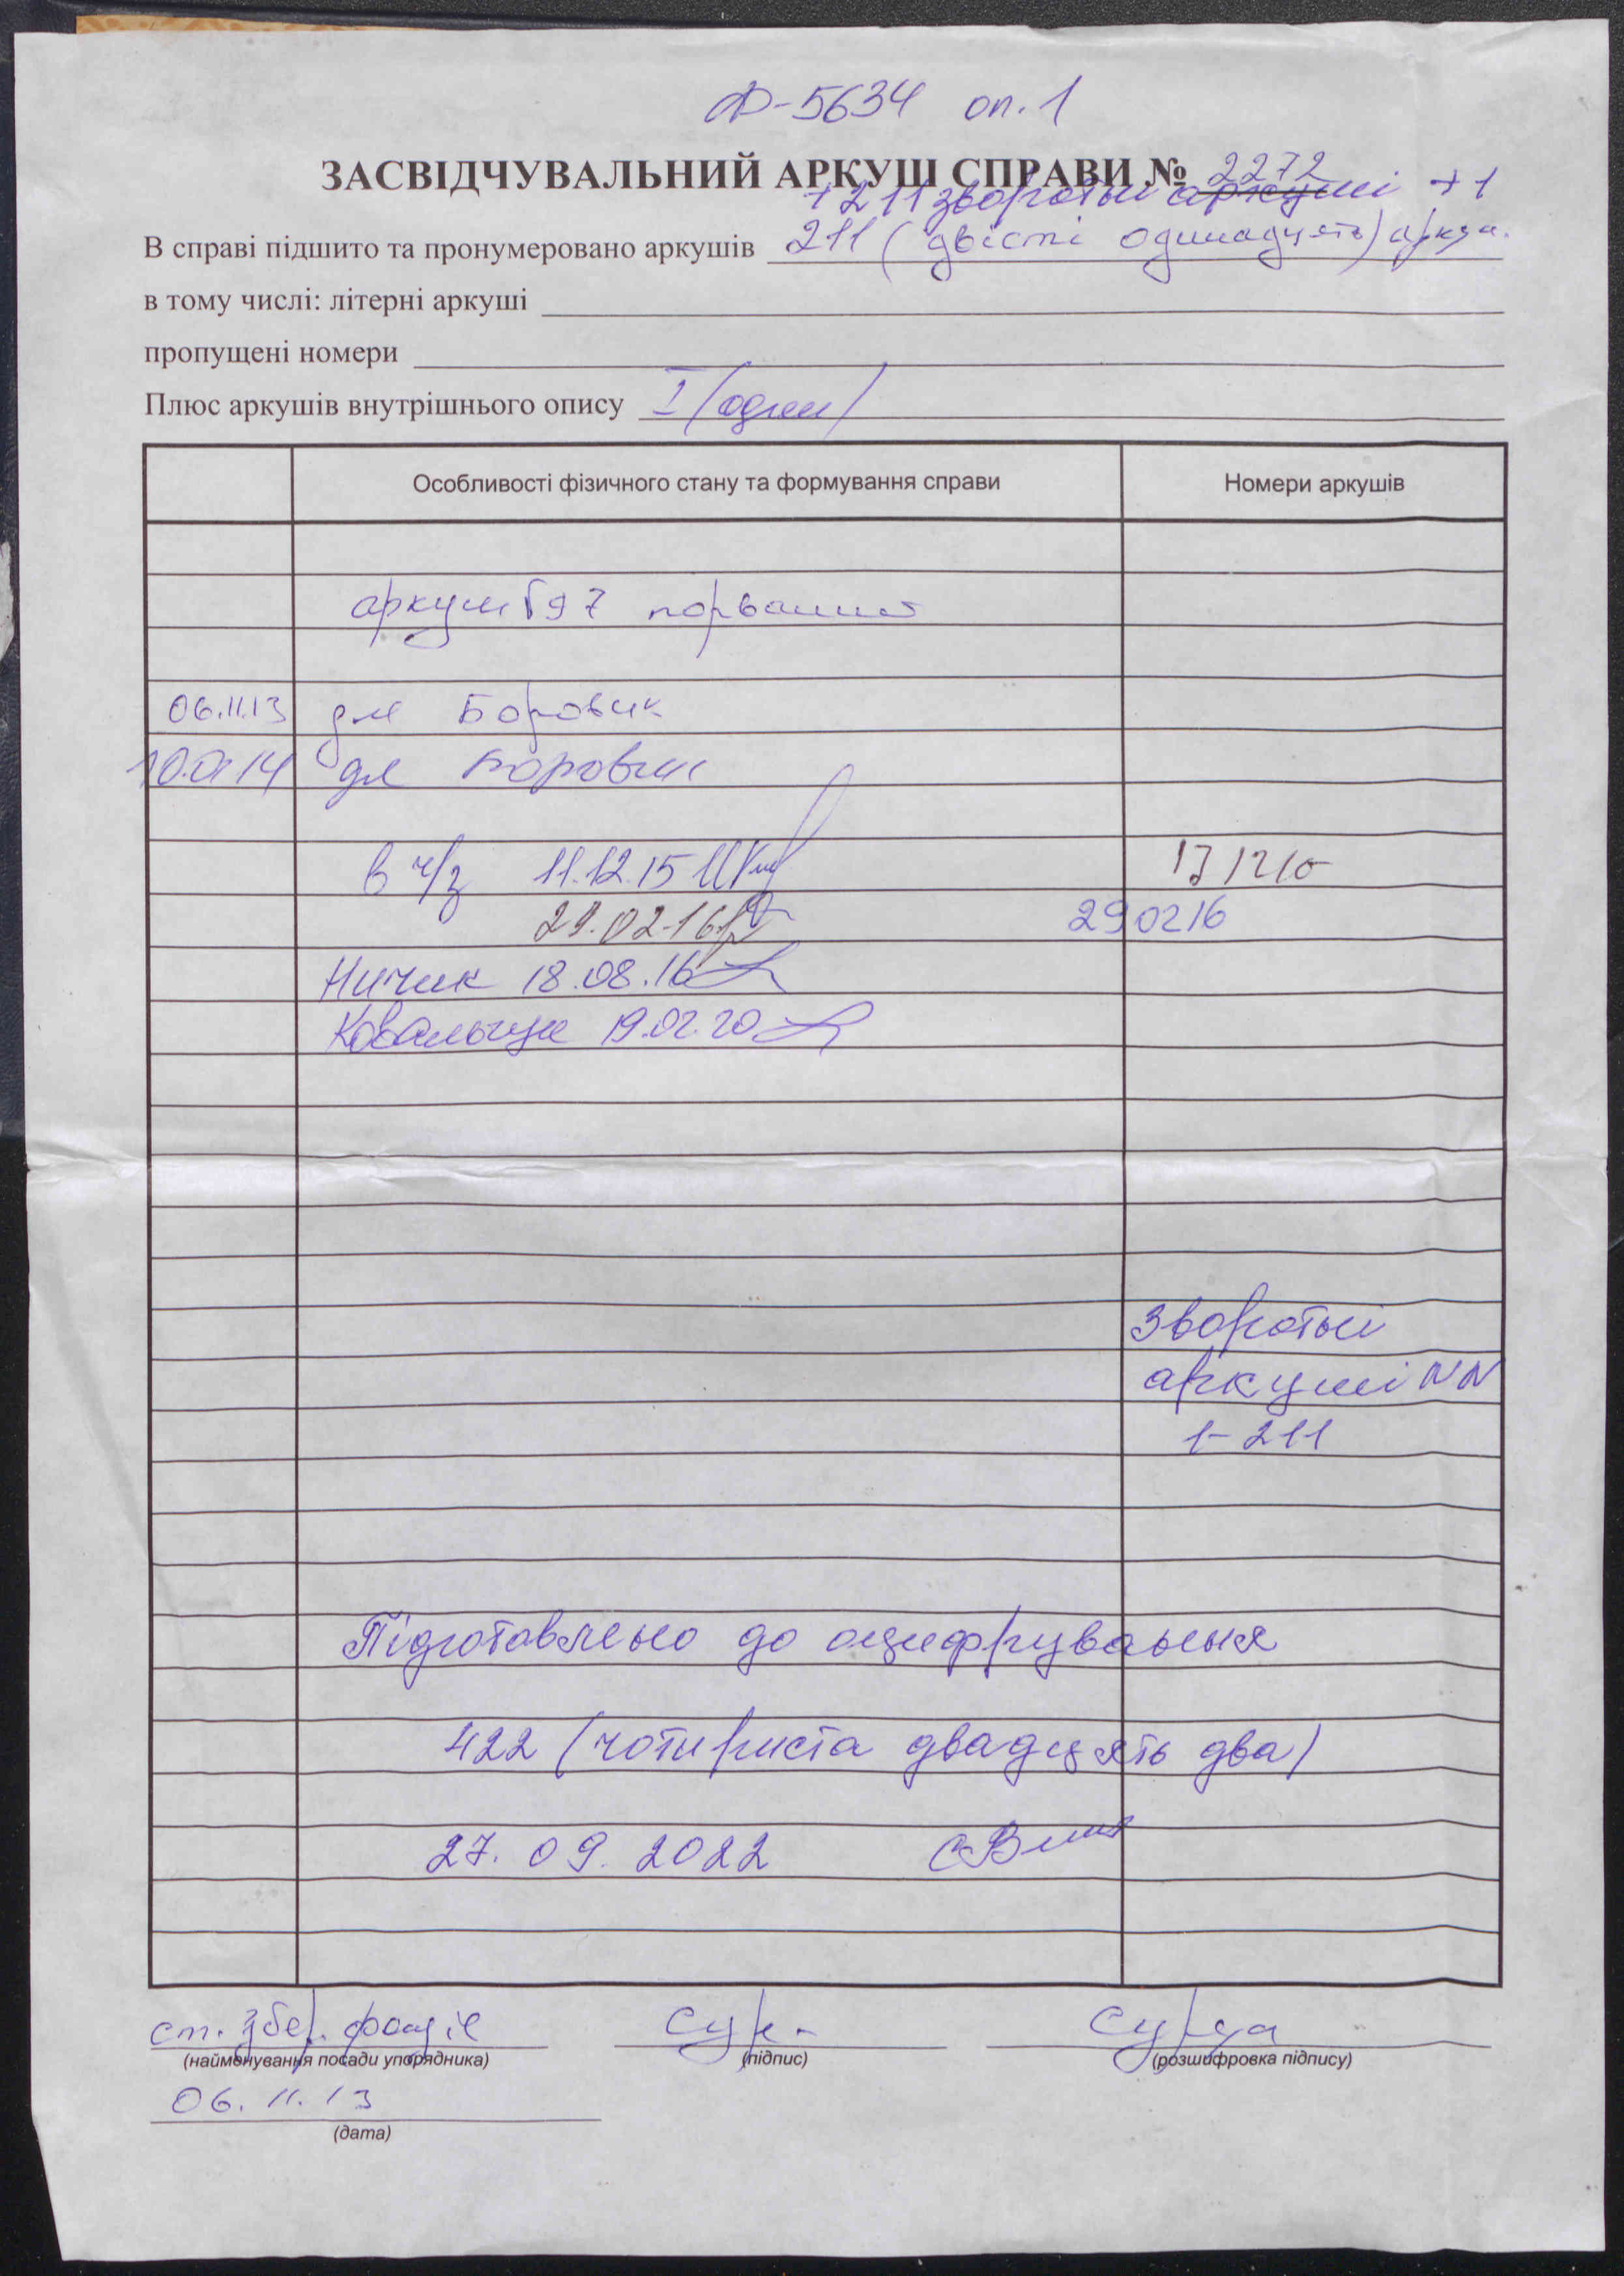 Ф-5634 оп. 1
ЗАСВІДЧУВАЛЬНИЙ АРКУШ СПРАВИ № 2272
+ 211 зворотні аркуші + 1
В справі підшито та пронумеровано аркушів 211 (двісті одинадцять) аркуш.
в тому числі: літерні аркуші
пропущені номери
Плюс аркушів внутрішнього опису I (один)
Особливості фізичного стану та формування справи Номери аркушів
аркуш 97 порваний
06.11.13 для Боровик
для Боровик
в ч/з 11.12.15
29.02.16 290216
Ничик 18.08.16
Ковальчук 19.02.20
Зворотні
аркуші NN
1-211
Підготовлено до оцифрування
422 (чотириста двадцять два)
27.09.2022
ст. збер. фондів Сур. Сурда
(найменування посади упорядника) (підпис) (розшифровка підпису)
06.11.13
(дата)